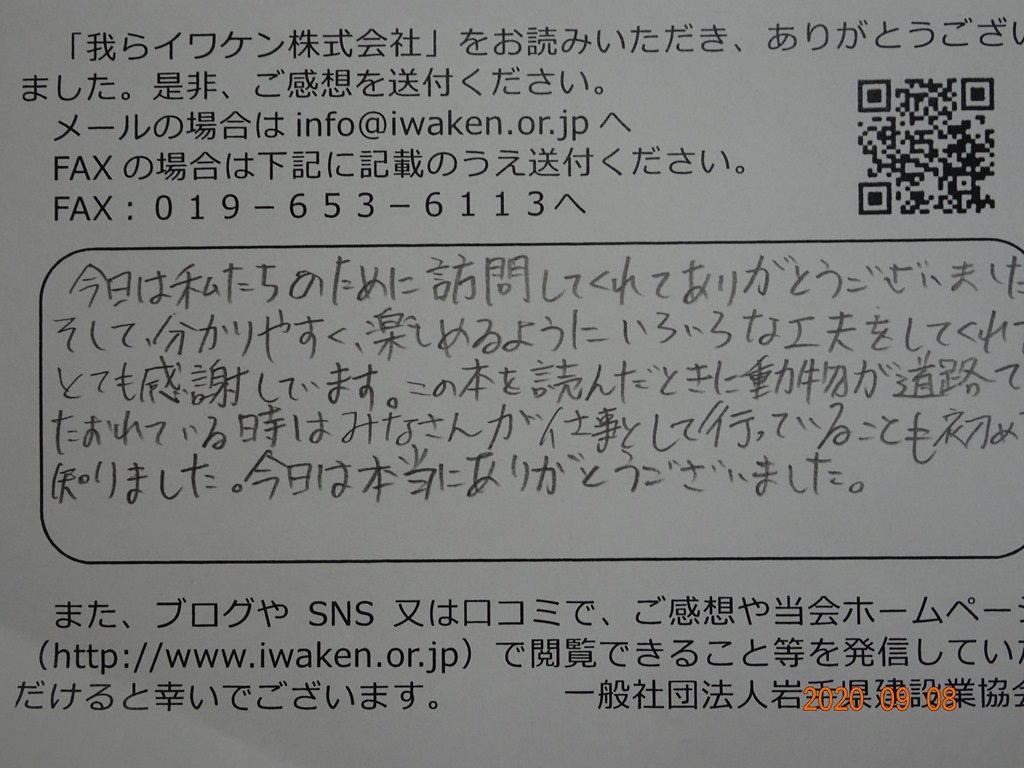 「我らイワケン株式会社」をお読みいただき、ありがとうござい
ました。是非、ご感想を送付ください。
メールの場合は info@iwaken.or.jp へ
FAX の場合は下記に記載のうえ送付ください。
FAX：０１９－６５３－６１１３へ
今日は私たちのために訪問してくれてありがとうございました
そして、分かりやすく、楽しめるようにいろいろな工夫をしてくれて
とても感謝しています。この本を読んだときに動物が道路で
たおれている時はみなさんが仕事として行っていることも初めて
知りました。今日は本当にありがとうございました。
また、ブログや SNS 又は口コミで、ご感想や当会ホームページ
（http://www.iwaken.or.jp）で閲覧できること等を発信していた
だけると幸いでございます。
一般社団法人岩手県建設業協会
2020 09 08